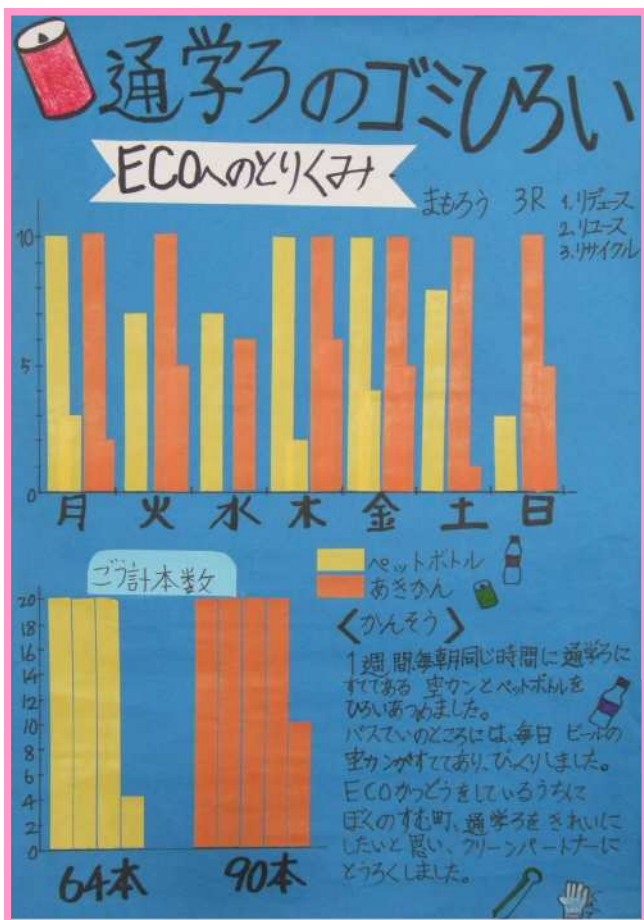 通学ろのゴミひろい
ECOへのとりくみ
まもろう 3R 1.リデュース
2.リユース
3.リサイクル
10
5
0
月 火 水 木 金 土 日
ごう計本数
ペットボトル
あきかん
20
18
16
14
12
10
8
6
4
2
0
64本 90本
〈かんそう〉
1週間毎朝同じ時間に通学ろに
すててある 空カンとペットボトルを
ひろいあつめました。
バスていのところには、毎日 ビールの
空カンがすててあり、びっくりしました。
ECOかつどうをしているうちに
ぼくのすむ町、通学ろをきれいに
したいと思い、クリーンパートナーに
とうろくしました。